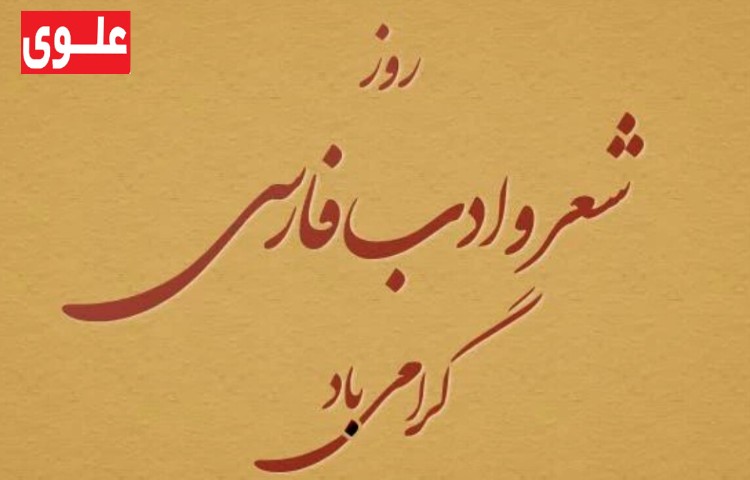 علوی
روز
شعر و ادب فارسی
گرامی باد